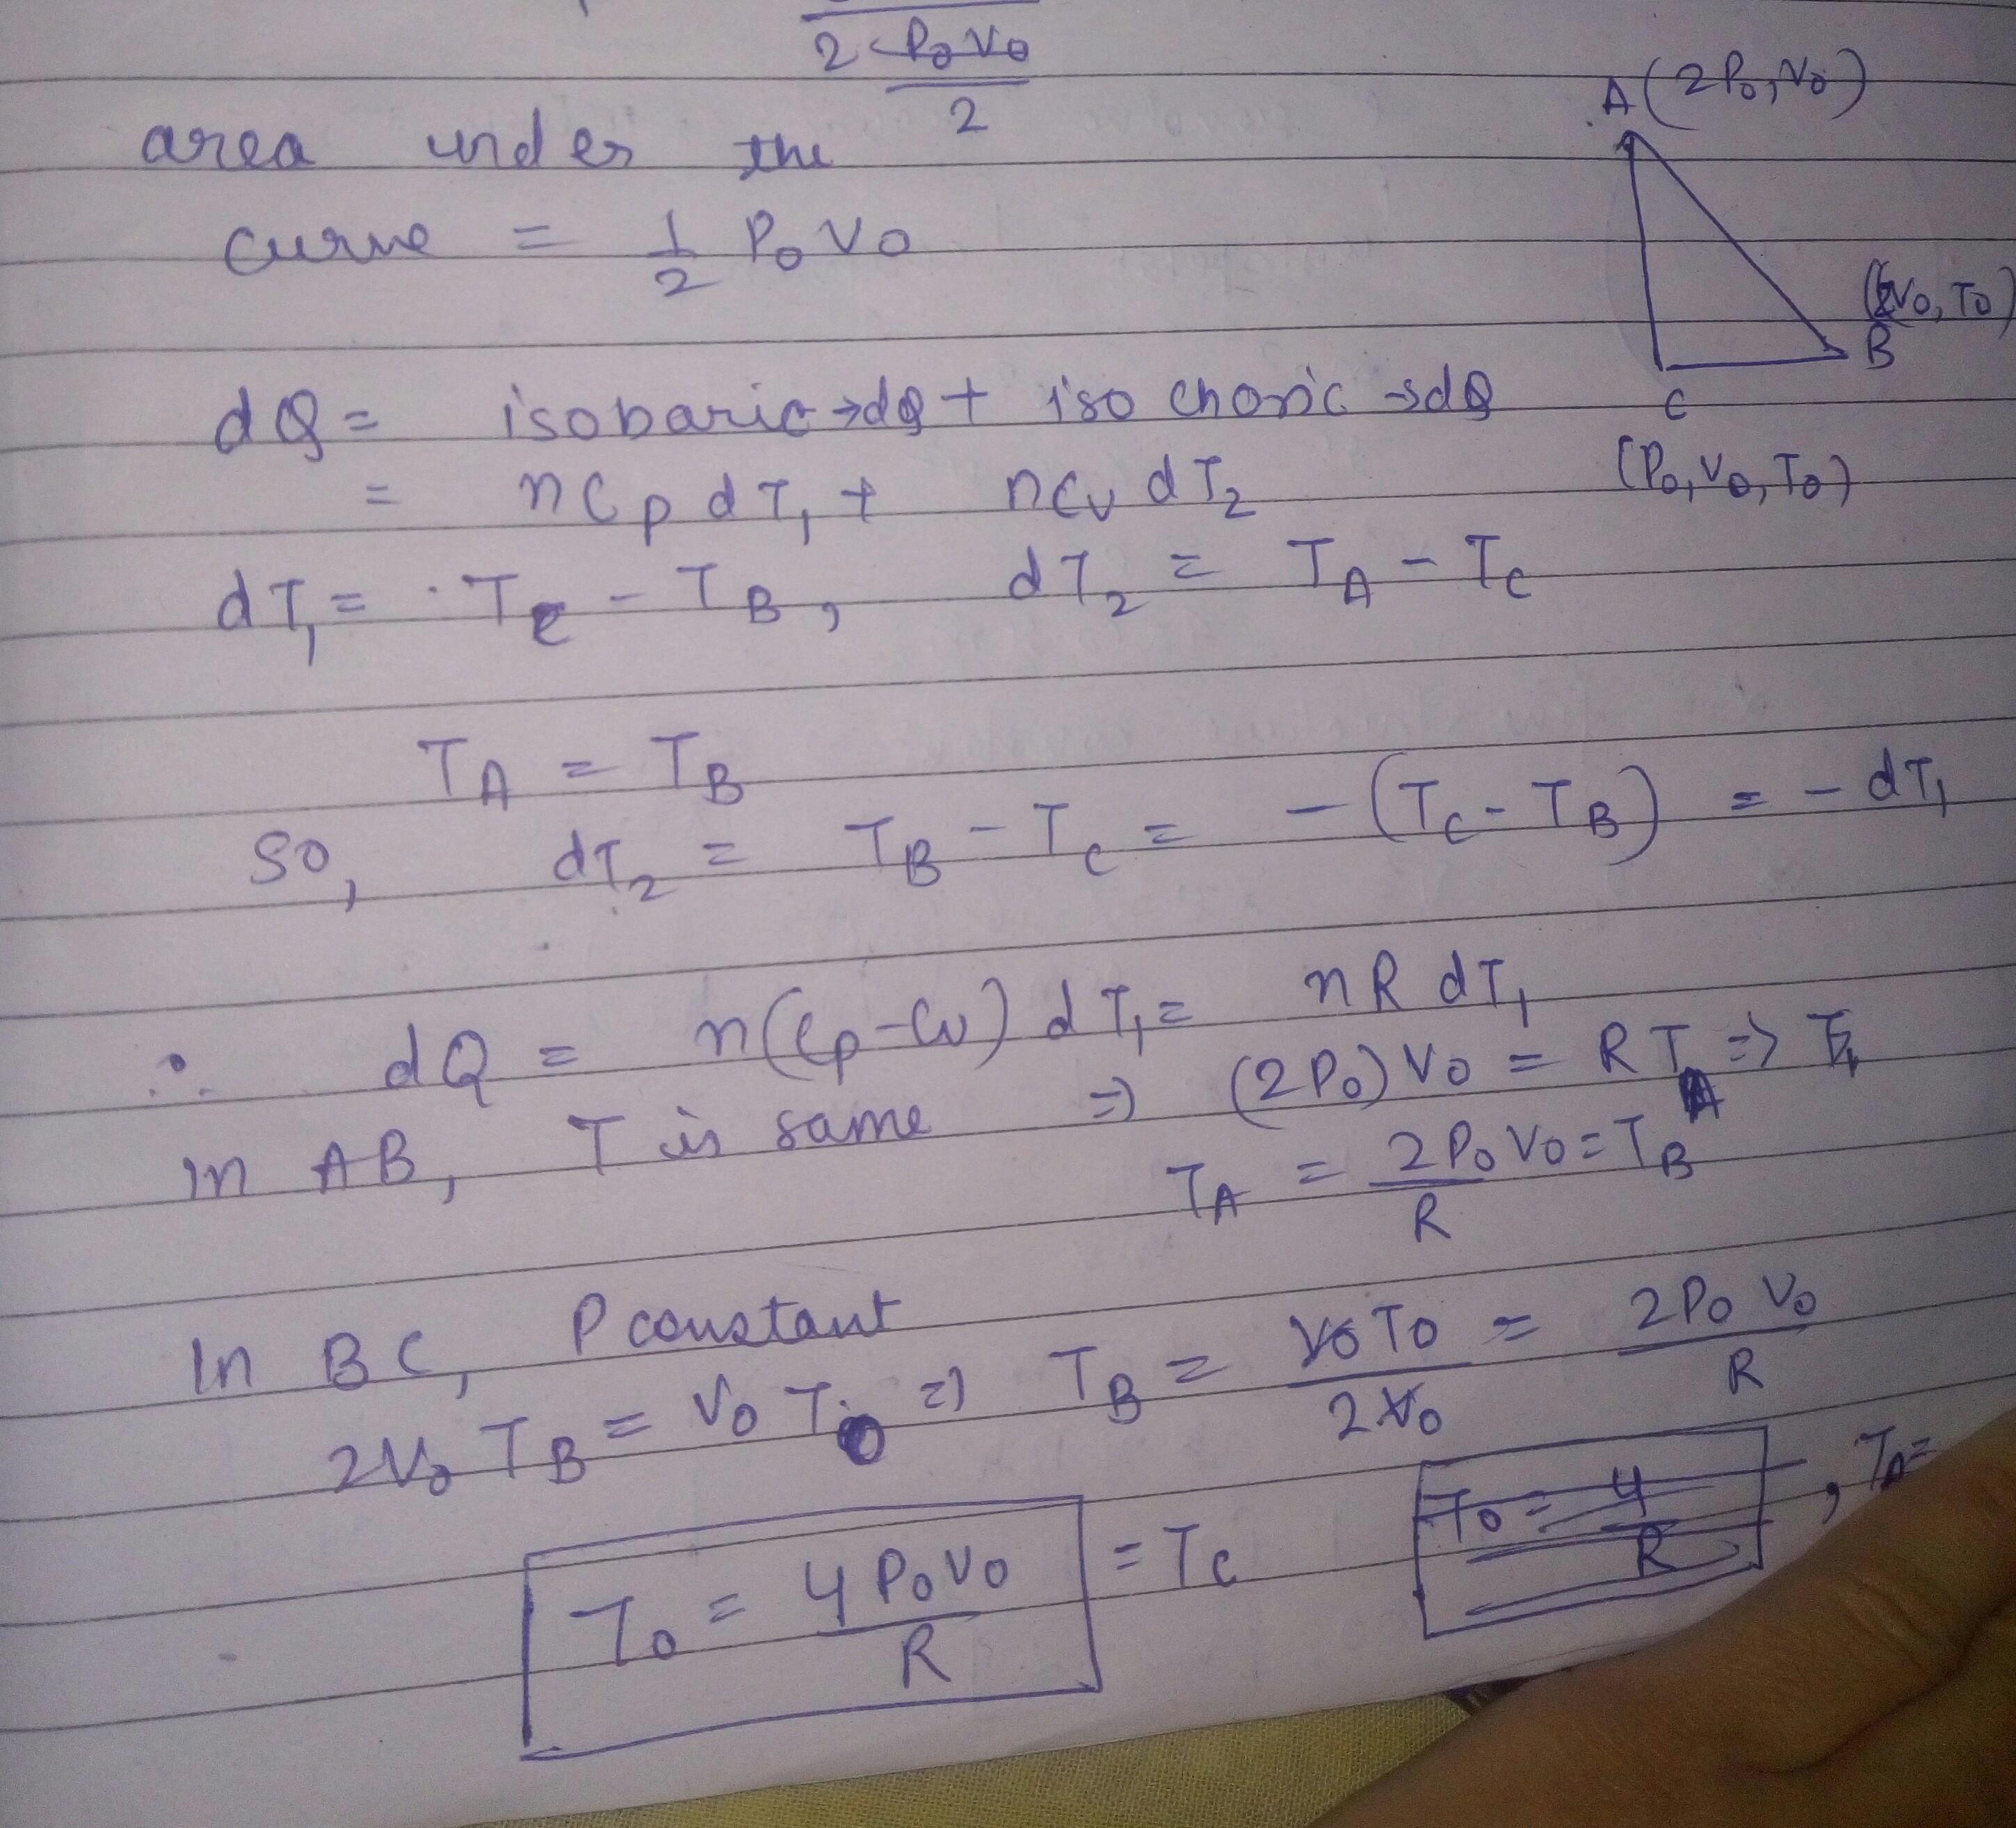 2 P₀V₀
2
A(2P₀, V₀)
area under the
curve = 1/2 P₀ V₀
B
dQ = isobaric → dQ + isochoric → dQ
C
= nCp dT₁ + nCv dT₂
(P₀, V₀, T₀)
dT₁ = TC - TB, dT₂ = TA - TC
TA = TB
So, dT₂ = TB - TC = -(TC - TB) = - dT₁
∴ dQ = n(Cp-Cv) dT₁ = nR dT₁
In AB, T is same ⇒ (2P₀) V₀ = R TA ⇒
TA = 2P₀V₀/R = TB
In BC, P constant
2V₀ TB = V₀ T₀ ⇒ TB = V₀T₀/2V₀ = 2P₀V₀/R
T₀ = 4P₀V₀/R = TC T₀ = 4/R , TA =